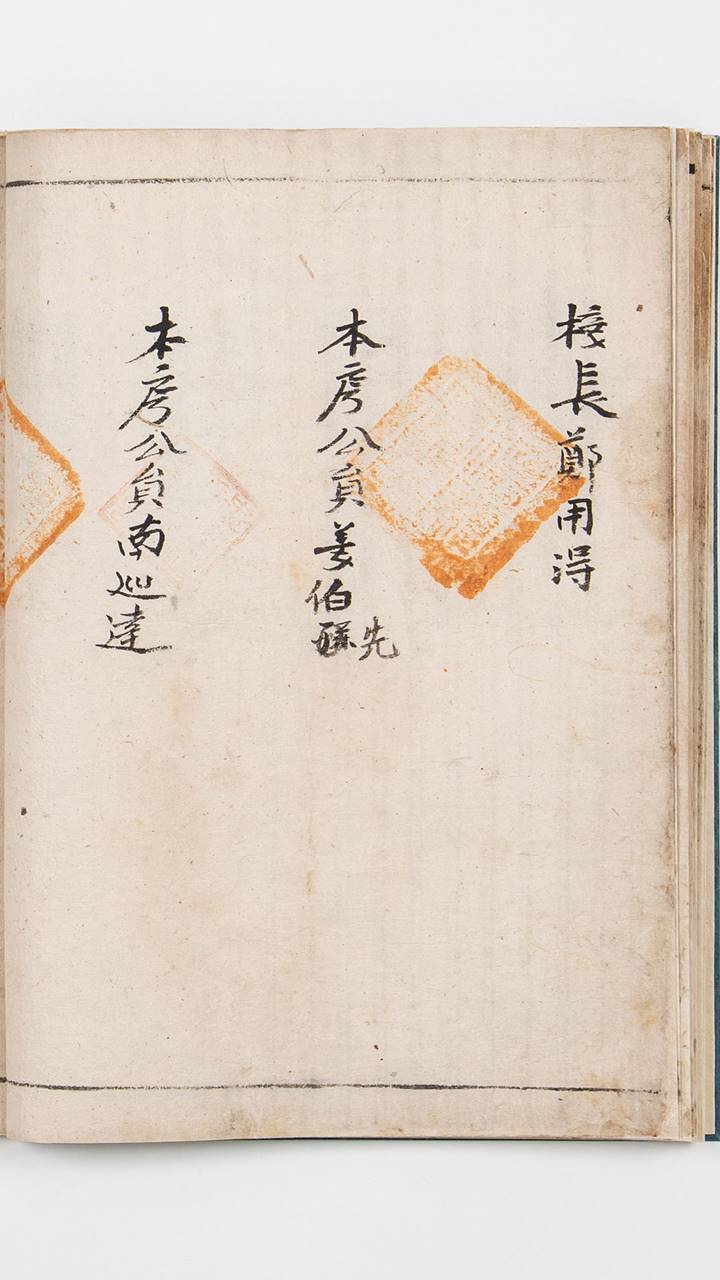 椄長鄭用淂
本房公員姜伯先
本房公員南巡達